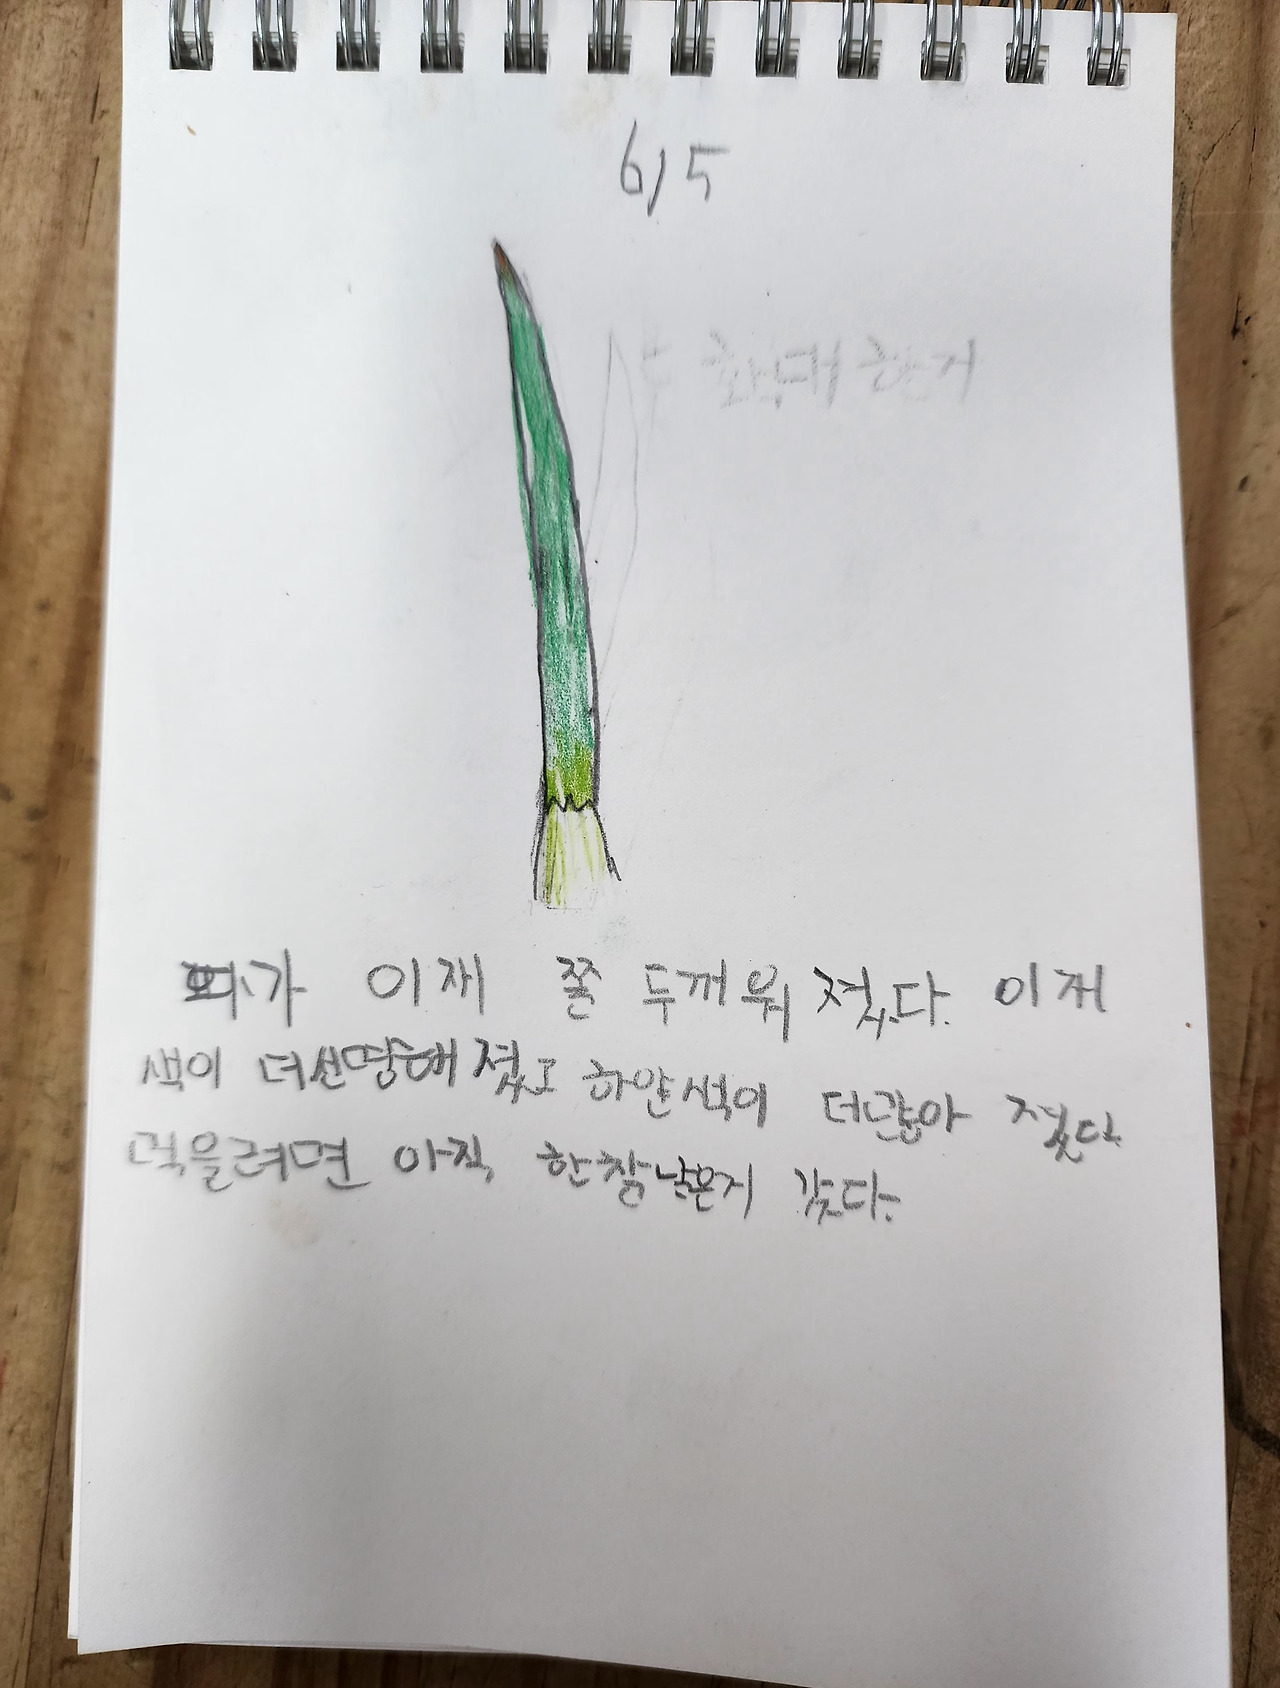 6/5
확대한거
파가 이재 쫄 두꺼워 젔다. 이게
색이 더선명해 젔고 하얀색이 더많아 젔다.
먹을려면 아직 한참남은거 같다.